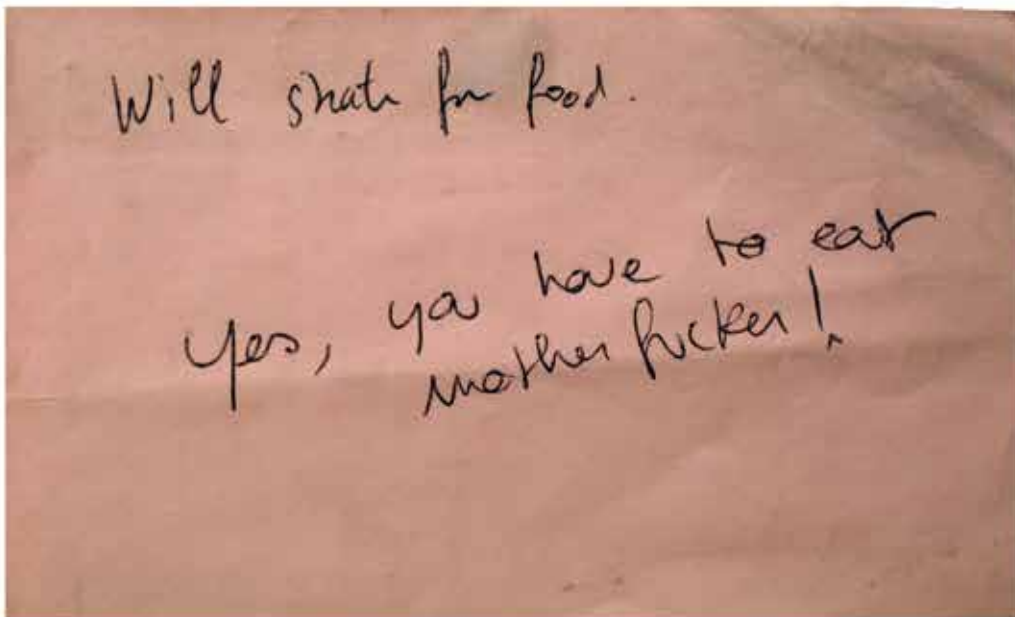 Will skate for food.
yes, you have to eat
motherfucker!